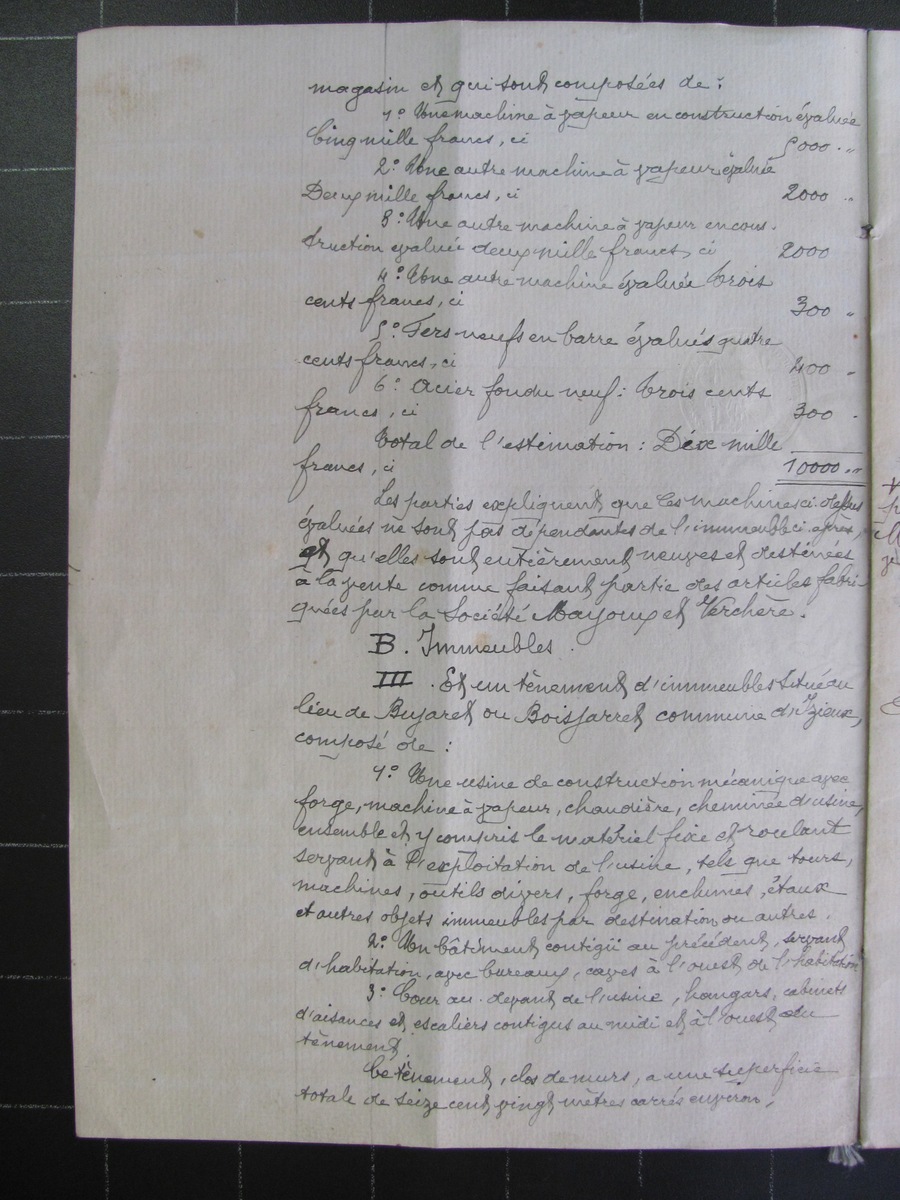 magasin et qui sont composées de :
1° Une machine à vapeur en construction évaluée
Cinq mille francs, ci 5000 . "
2° Une autre machine à vapeur évaluée
Deux mille francs, ci 2000 "
3° Une autre machine à vapeur en cons-
truction évaluée deux mille francs, ci 2000
4° Une autre machine évaluée trois
cents francs, ci 300 "
5° Fers neufs en barre évalués quatre
cents francs, ci 400 "
6° Acier fondu neuf : trois cents
francs, ci 300 "
Total de l'estimation : Dix mille
francs, ci 10000 . "
Les parties expliquent que les machines ci-dessus
évaluées ne sont pas dépendantes de l'immeuble ci-après,
et qu'elles sont entièrement neuves et destinées
à la vente comme faisant partie des articles fabri-
quées par la Société Mayoux et Verchère.
B. Immeubles.
III. Et un tènement d'immeubles situé au
lieu de Bujaret ou Boisjarret commune d'Izieux,
composé de :
1° Une usine de construction mécanique avec
forge, machine à vapeur, chaudière, cheminée d'usine,
ensemble et y compris le matériel fixe et roulant
servant à l'exploitation de l'usine, tels que tours,
machines, outils divers, forge, enclumes, étaux
et autres objets immeubles par destination ou autres.
2° Un bâtiment contigü au précédent, servant
d'habitation, avec bureaux, caves à l'ouest de l'habitation
3° Cour au-devant de l'usine, hangars, cabinets
d'aisances et escaliers contigus au midi et à l'ouest du
tènement.
Ce tènement, clos de murs, a une superficie
totale de seize cent vingt mètres carrés environ,